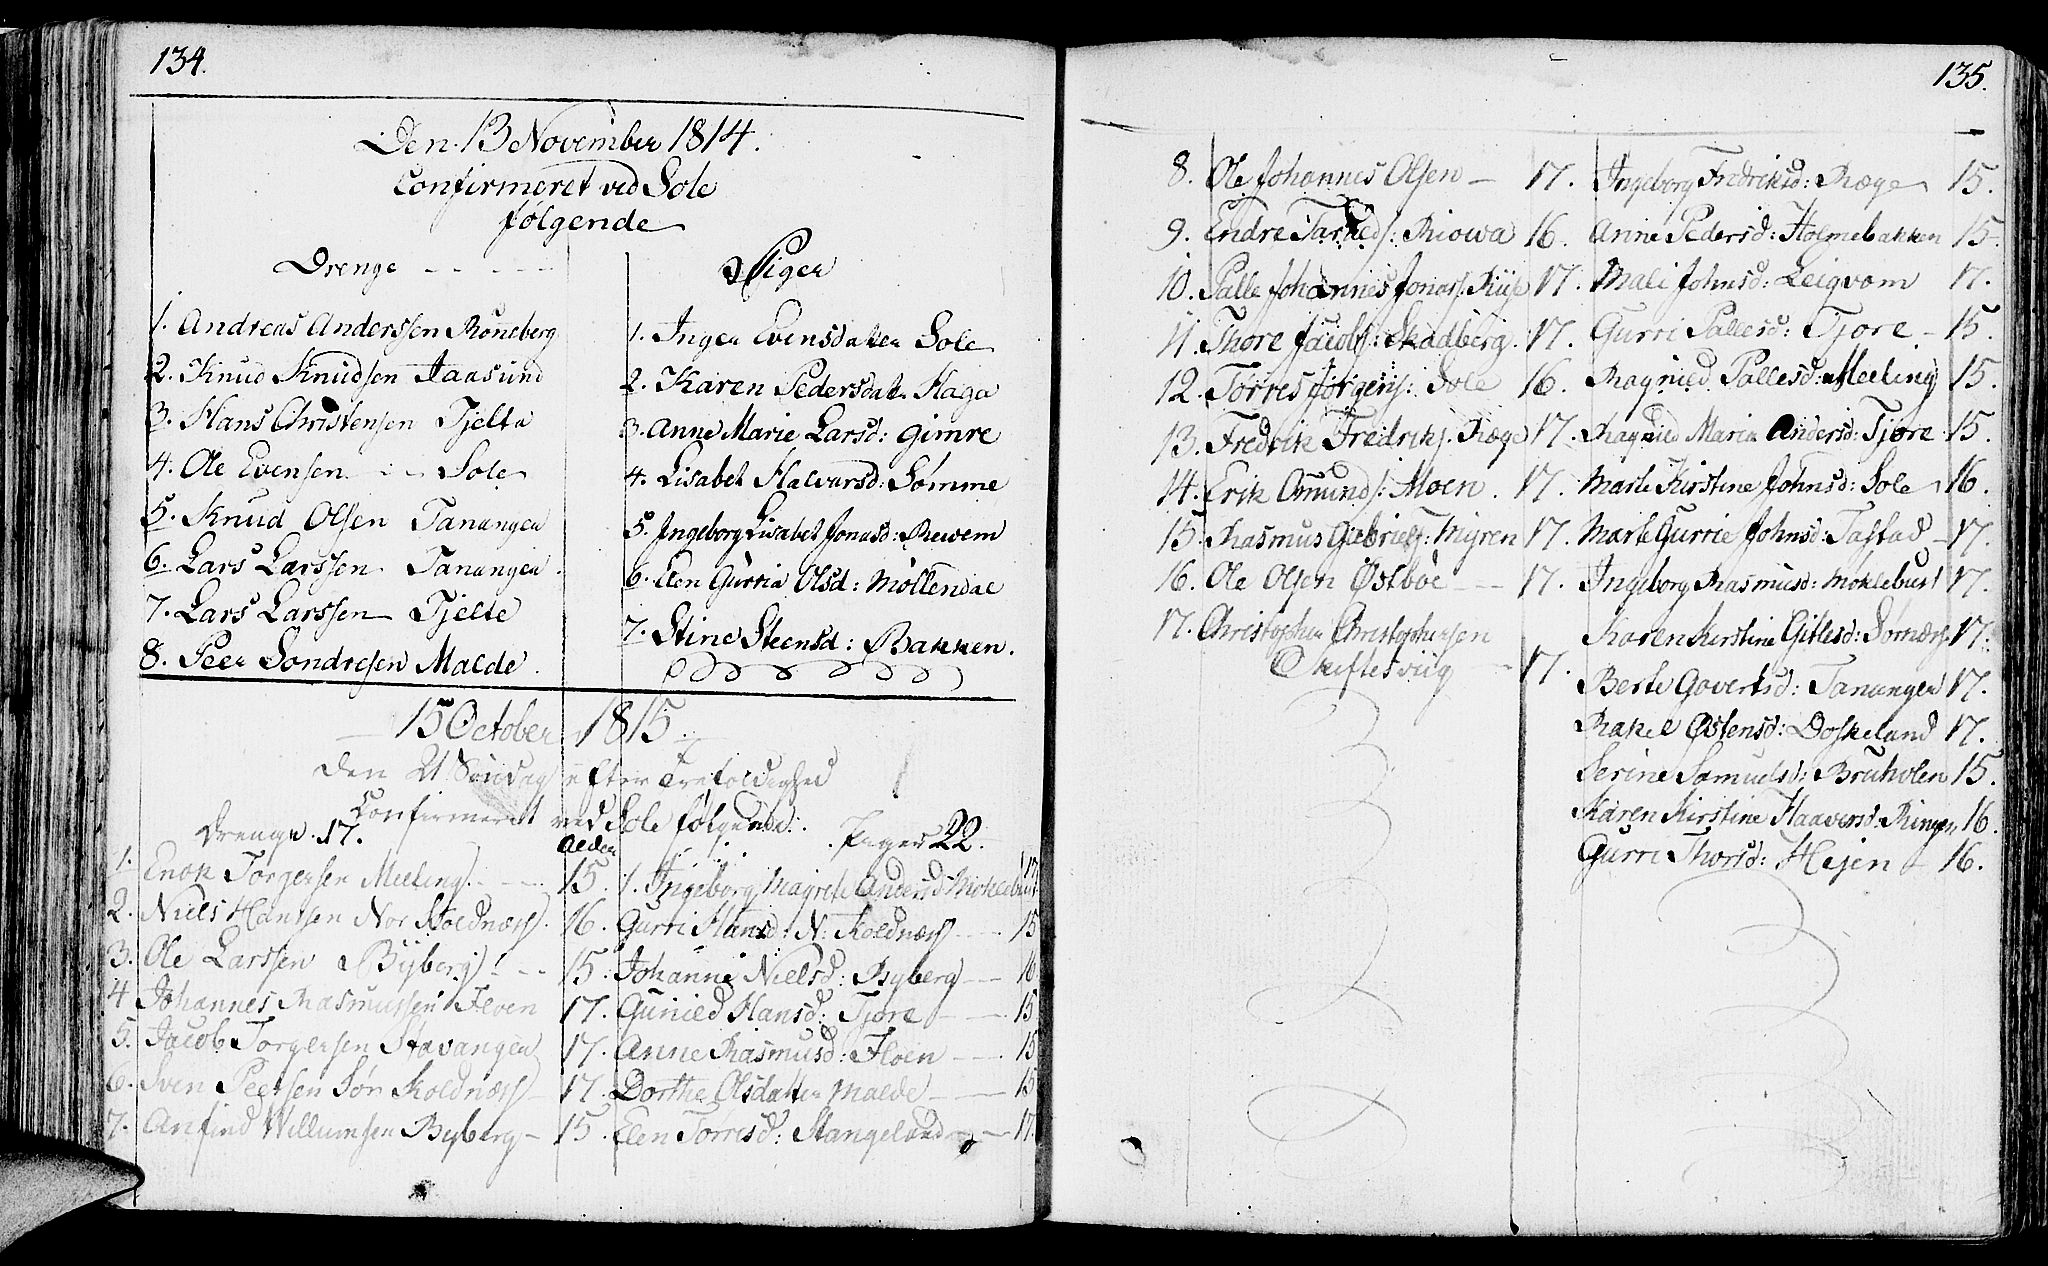 134.
Den 13 November 1814.
Confirmeret ved Sole
følgende
Drenge
1. Andreas Anderssen Röneberg
2. Knud Knudsen Jaasund
3. Hans Christensen Tjelta
4. Ole Evensen Sole
5. Knud Olsen Tanangen
6. Lars Larssen Tanangen
7. Lars Larssen Tjelte
8. Peer Sondresen Malde.
Piger
1. Inger Evensdatter Sole
2. Karen Pedersdatr Haga
3. Anne Marie Larsd: Gimre
4. Lisabet Halvarsd: Sømme
5. Ingeborg Lisabet Jonasd: Rewem
6. Elen Gurria Olsd: Möllendal
7. Stine Steensd: Bakken.
15 October 1815.
Den 21 Söndag efter Trefoldighed
Confirmeret ved Sole følgende.
Drenge 17.
Alder
Piger 22.
1. Enok Torgersen Meeling 15.
2. Niels Hansen Nor Koldnæss 16.
3. Ole Larssen Byberg 15.
4 Johannes Rasmussen Floen 17.
5. Jacob Torgersen Stavangen 17.
6. Sven Peersen Sör Koldnæss 17.
7. Anfind Willumsen Byberg 15.
1. Ingeborg Magrete Andersd: Moklebust 17
Gurri Hansd: N: Koldnæss 15
Johanne Nielsd: Byberg 16
Gunild Hansd: Tjore 15
Anne Rasmusd: Floen 15
Dorthe Olsdatter Malde 15
Elen Torresd: Stangeland 17.
135.
8. Ole Johannes Olsen 17.
9. Endre Riowa 16.
10. Palle Johannes Jonass. 17.
11. Thore Jacobs: Skadberg. 17.
12. Torres Jörgens: Sole 16.
13. Fredrik Fredriks. Ræge 17.
14. Erik Omunds: Moen. 17.
15. Rasmus Gabriels: Myren 17.
16. Ole Olsen Østböe 17.
17. Christopher Christophersen
Skiftesviig 17.
Ingeborg Fredriksd: Ræge 15.
Anne Pedersd: Holmebakken 15.
Mali Johnsd: Leigvam 17.
Gurri Pallesd: Tjore 15.
Ragnild Pallesd: Meeling 15.
Ragnild Maria Andersd: Tjore 15.
Marte Kirstine Johnsd: Sole 16.
Marte Gurrie Johnsd: Tastad 17.
Ingeborg Rasmusd: Moklebust 17.
Karen Kirstine Gitlesd: 17.
Berte Govertsd: Tanangen 17.
Rakel Østensd: Doskeland 17.
Serine Samuelsd: Bruholen 15.
Karen Kirstine Haaversd: Ringen 16.
Gurri Thorsd: Hejen 16.